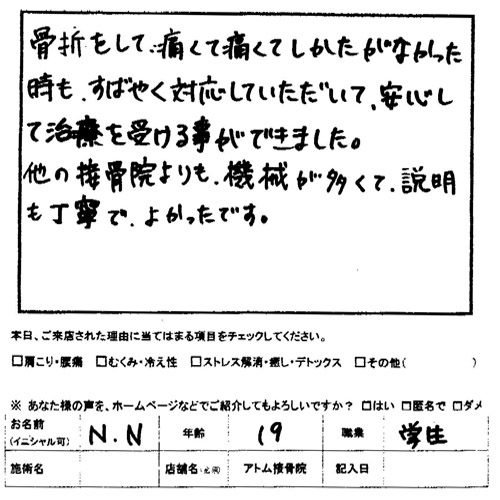 骨折をして、痛くて痛くてしかたがなかった
時も、すばやく対応していただいて、安心し
て治療を受ける事ができました。
他の接骨院よりも、機械が多くて、説明
も丁寧で、よかったです。
本日、ご来店された理由に当てはまる項目をチェックしてください。
□肩こり・腰痛 □むくみ・冷え性 □ストレス解消・癒し・デトックス □その他( )
※ あなた様の声を、ホームページなどでご紹介してもよろしいですか? □はい □匿名で □ダメ
お名前 (イニシャル可) N.N 年齢 19 職業 学生
施術名 店舗名 アトム接骨院 記入日